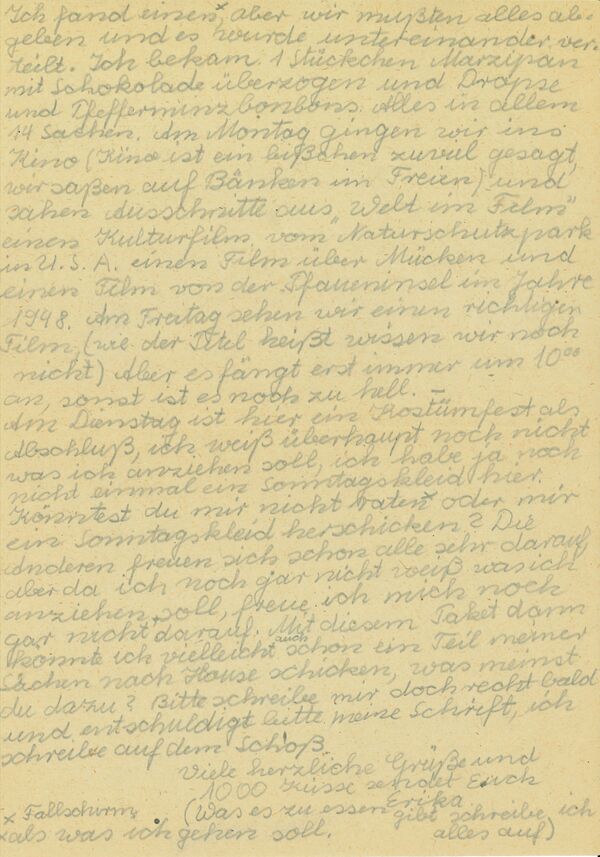 Ich fand einen, ˣ aber wir mußten alles ab-
geben und es wurde untereinander ver-
teilt. Ich bekam 1 Stückchen Marzipan
mit Schokolade überzogen und Dropse
und Pfefferminzbonbons. Alles in allem
14 Sachen. Am Montag gingen wir ins
Kino (Kino ist ein bißchen zuviel gesagt,
wir saßen auf Bänken im Freien) und
sahen Ausschnitte aus „Welt im Film"
einen Kulturfilm vom „Naturschutzpark
in U.S.A. einen Film über Mücken und
einen Film von der Pfaueninsel im Jahre
1948. Am Freitag sehen wir einen richtigen
Film, (wie der Titel heißt wissen wir noch
nicht) Aber es fängt erst immer um 10⁰⁰
an, sonst ist es noch zu hell. –
Am Dienstag ist hier ein Kostümfest als
Abschluß, ich weiß überhaupt noch nicht
was ich anziehen soll, ich habe ja noch
nicht einmal ein Sonntagskleid hier.
Könntest du mir nicht raten ˣ oder mir
ein Sonntagskleid herschicken? Die
Anderen freuen sich schon alle sehr darauf,
aber da ich noch gar nicht weiß was ich
anziehen soll, freue ich mich noch
gar nicht darauf. Mit diesem Paket dann
könnte ich vielleicht auch schon ein Teil meiner
Sachen nach Hause schicken, was meinst
du dazu? Bitte schreibe mir doch recht bald
und entschuldigt bitte meine Schrift, ich
schreibe auf dem Schoß.
Viele herzliche Grüße und
1000 Küsse sendet Euch
Erika
x Fallschirm,
(Was es zu essen gibt schreibe ich
alles auf)
x als was ich gehen soll.